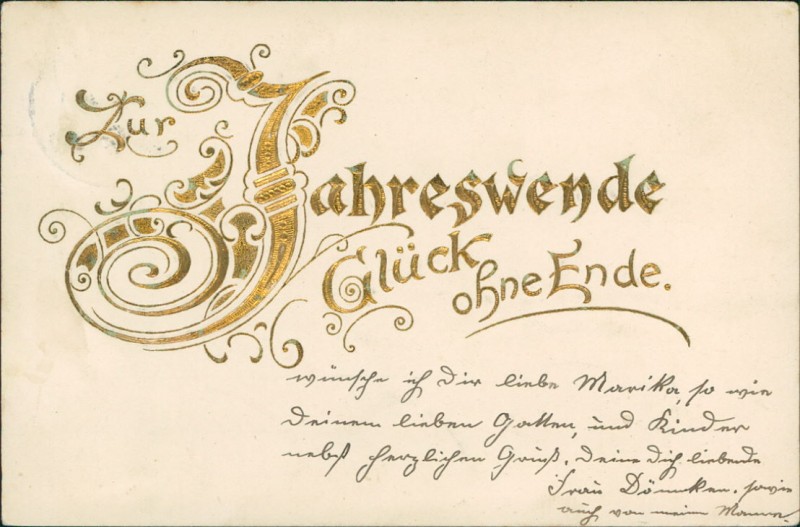 Zur
Jahreswende
Glück
ohne Ende.
wünsche ich Dir liebe Marika, so wie
Deinem lieben Gatten, und Kinder
nebst herzlichen Gruß, Deine Dich liebende
Frau sowie
auch von meinem Manne.